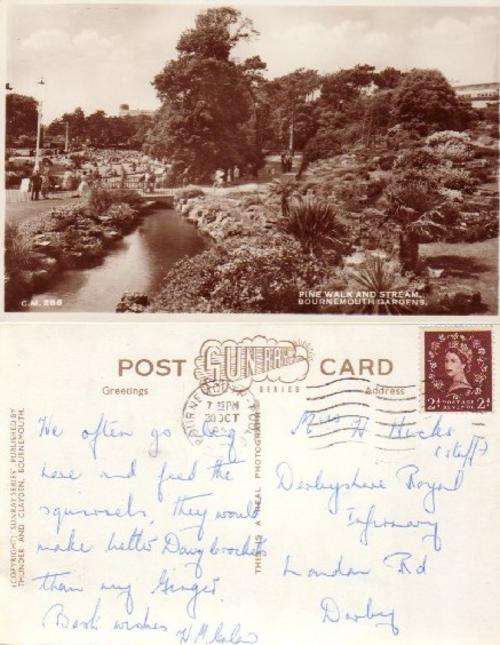 C.M. 286
PINE WALK AND STREAM,
BOURNEMOUTH GARDENS.
POST SUNRAY CARD
SERIES
Greetings
Address
BOURNEMOUTH
7 15PM
30 OCT
2½ POSTAGE REVENUE 2½
(COPYRIGHT) SUNRAY SERIES PUBLISHED BY
THUNDER AND CLAYDEN, BOURNEMOUTH.
THIS IS A REAL PHOTOGRAPH
We often go
here and feed the
squirrels, they would
make better
than my Ginger.
Best wishes H M
Miss H Hicks
(staff)
Derbyshire Royal
Infirmary
London Rd
Derby